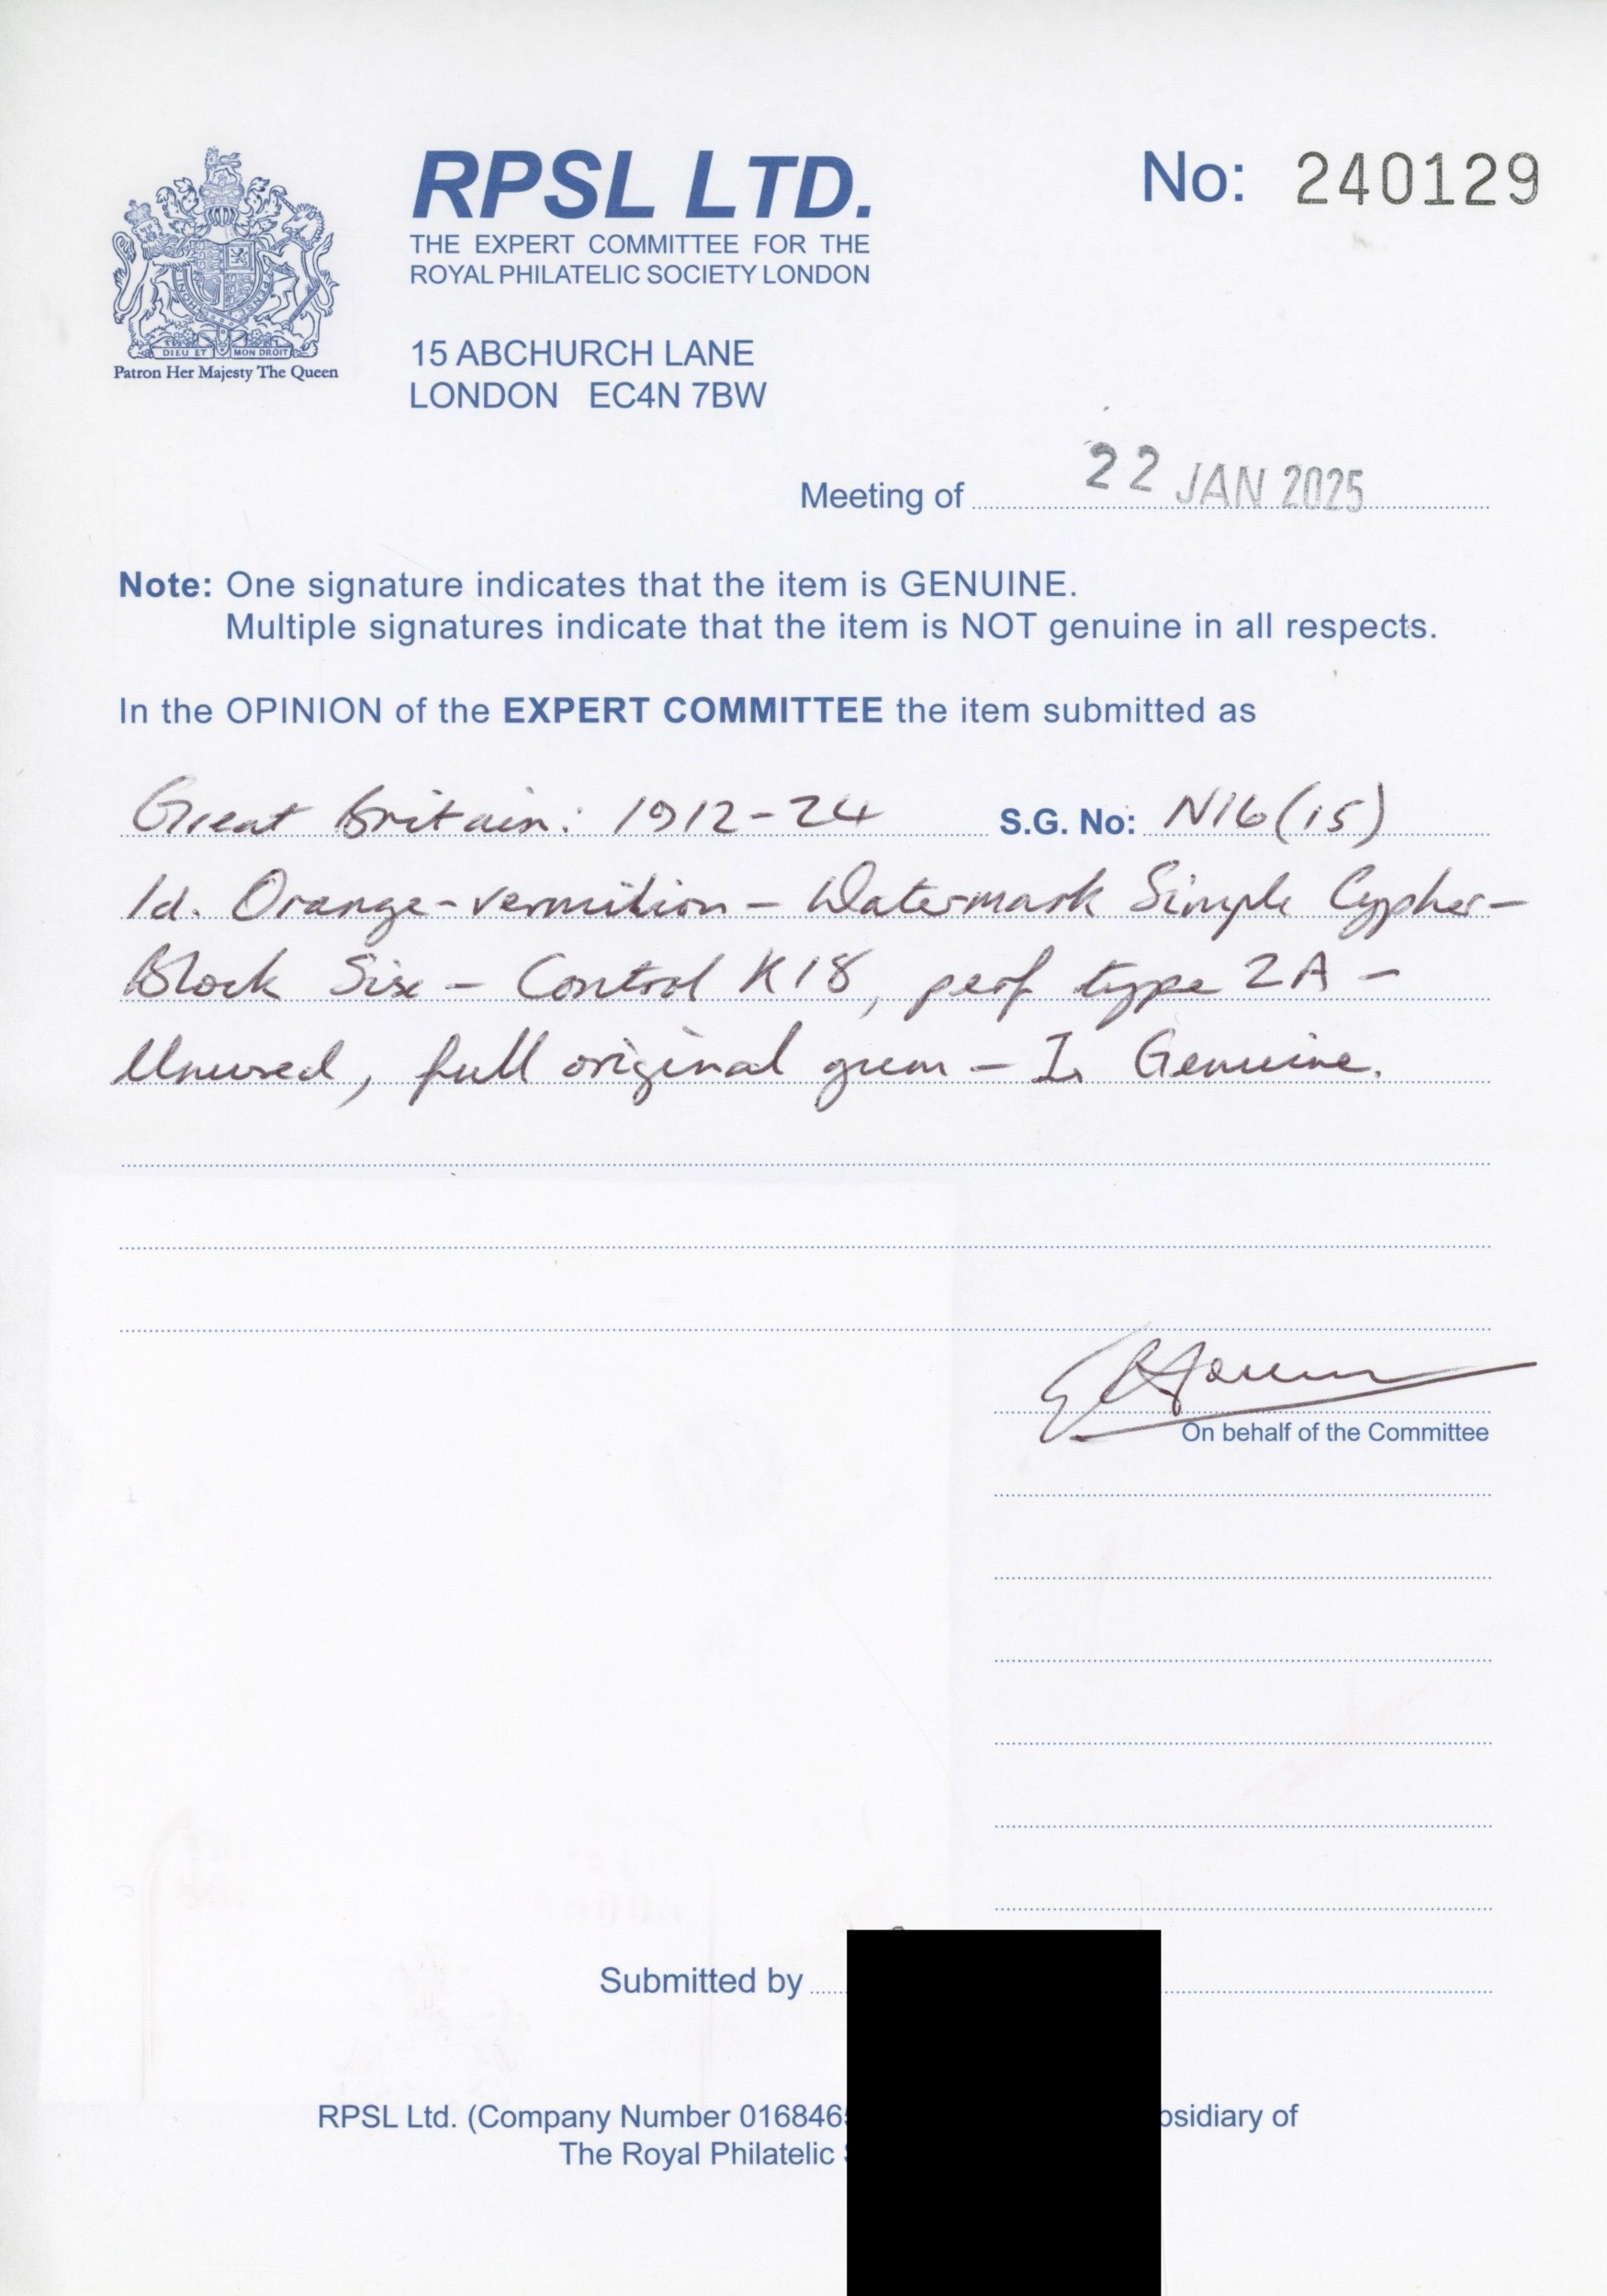 RPSL LTD.
No: 240129
THE EXPERT COMMITTEE FOR THE
ROYAL PHILATELIC SOCIETY LONDON
DIEU ET MON DROIT
Patron Her Majesty The Queen
15 ABCHURCH LANE
LONDON EC4N 7BW
Meeting of 22 JAN 2025
Note: One signature indicates that the item is GENUINE.
Multiple signatures indicate that the item is NOT genuine in all respects.
In the OPINION of the EXPERT COMMITTEE the item submitted as
Great Britain: 1912-24 S.G. No: N16(15)
1d. Orange-vermilion - Watermark Simple Cypher -
Block Six - Control K18, perf type 2A -
Unused, full original gum - Is Genuine.
On behalf of the Committee
Submitted by
RPSL Ltd. (Company Number 016846 sidiary of
The Royal Philatelic